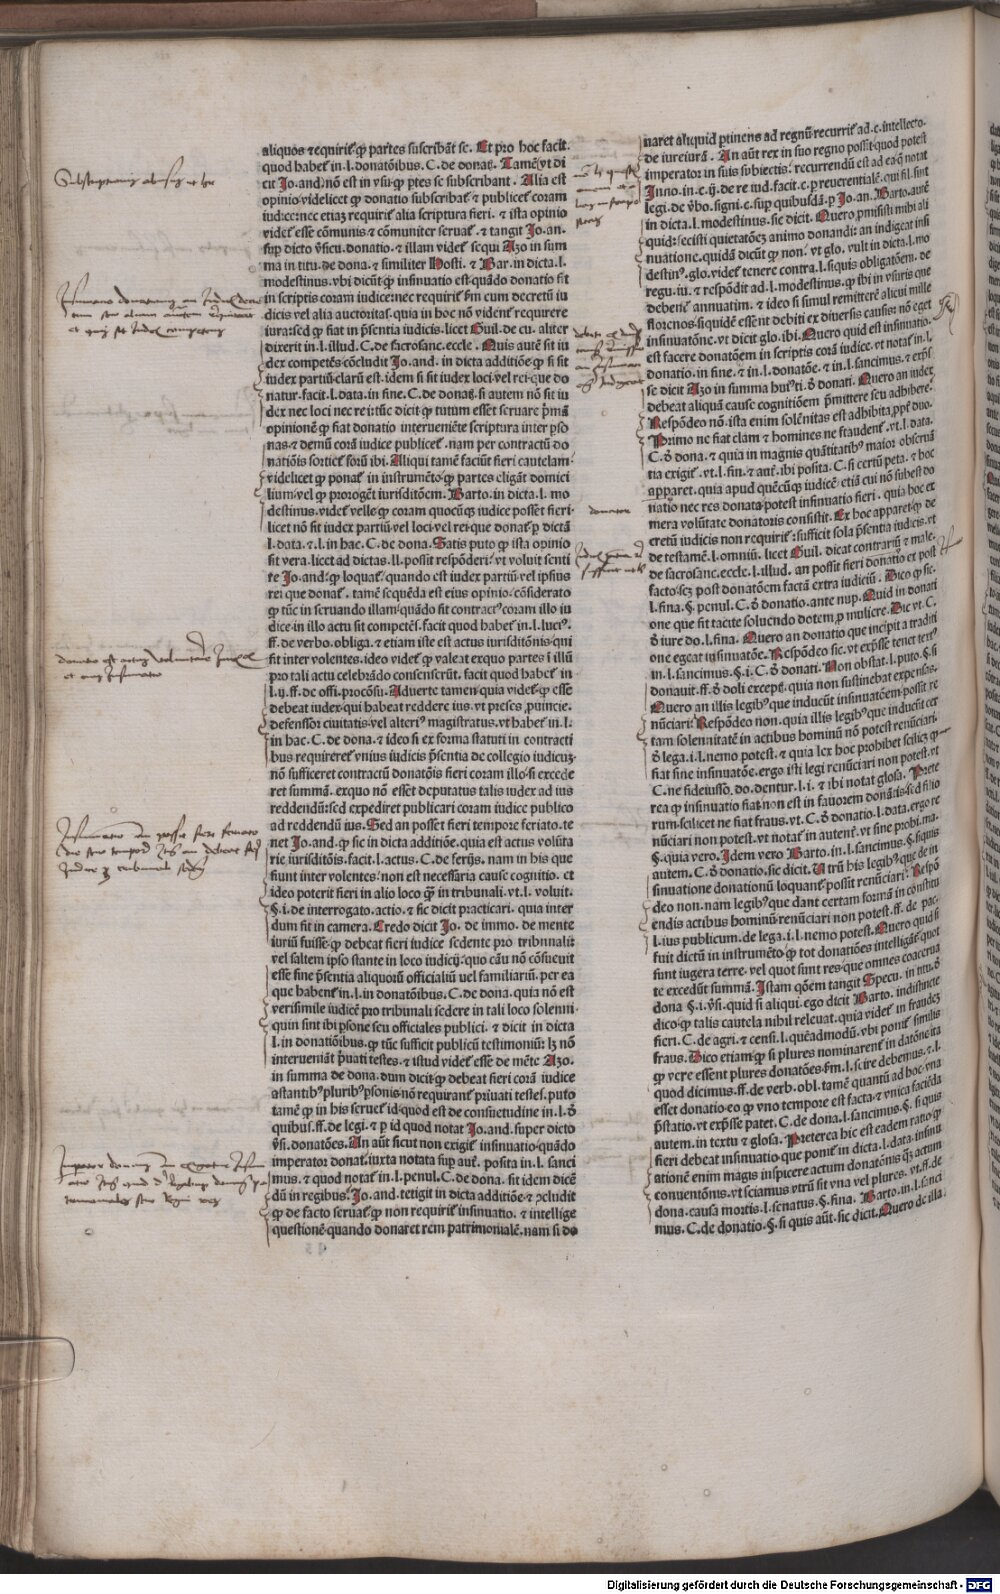 aliquos ⁊ equirit̄ ꝙ partes subscribāt se. Et pro hoc facit
quod habet̄ in.l.donatōibus.C.de donat̄. Tamē vt di
cit Jo.and.nō est in vsu ꝙ ptes se subscribant. Alia est
opinio videlicet ꝙ donatio subscribat̄ ⁊ publicet̄ coram
iudice:nec etiaȝ requirit̄ alia scriptura fieri. ⁊ ista opinio
videt̄ esse cōmunis ⁊ cōmuniter seruat̄. ⁊ tangit Jo.an.
sup̱ dicto v̓sicu.donatio. ⁊ illam videt̄ sequi Azo in sum
ma in titu.de dona. ⁊ similiter Hosti. ⁊ Bar.in dicta.l.
modestinus.vbi dicūt ꝙ insinuatio est quādo donatio fit
in scriptis coram iudice:nec requirit̄ fm̄ cum decretū iu
dicis vel alia auctoritas.quia in hoc nō vident̄ requirere
iura:sed ꝙ fiat in p̄sentia iudicis.licet Guil.de cu.aliter
dixerit in.l.illud.C.de sacrosanc.eccle. Quis autē sit iu
dex competēs cōcludit Jo.and.in dicta additiōe ꝙ si sit
iudex partiū clarū est.idem si sit iudex loci vel rei que do
natur.facit.l.data.in fine.C.de donat̄.si autem nō sit iu
dex nec loci nec rei:tūc dicit ꝙ tutum esset seruare p̄mā
opinionē ꝙ fiat donatio interueniēte scriptura inter p̱so
nas ⁊ demū corā iudice publicet̄.nam per contractū do
natiōis sortiet̄ forū ibi. Aliqui tamē faciūt fieri cautelam
videlicet ꝙ ponat̄ in instrumēto ꝙ partes eligāt domici
lium vel ꝙ prorogēt iurisditōem. Barto.in dicta.l.mo
destinus.videt̄ velle ꝙ coram quocūqȝ iudice possēt fieri
licet nō sit iudex partiū vel loci vel rei que donat̄ p̱ dictā
l.data.⁊.l.in hac.C.de dona. Satis puto ꝙ ista opinio
sit vera.licet ad dictas.ll.possit respōderi:vt voluit senti
re Jo.and:ꝙ loquat̄ quando est iudex partiū vel ipsius
rei que donat̄. tamē sequēda est eius opinio.cōsiderato
ꝙ tūc in seruando illam quādo fit contract⁹ coram illo iu
dice in illo actu sit competēs.facit quod habet̄ in.l.luci⁹.
ff.de verbo.obliga.⁊ etiam iste est actus iurisditōnis qui
fit inter volentes.ideo videt̄ ꝙ valeat exquo partes i illū
pro tali actu celebrādo consenserūt. facit quod habet̄ in
l.ij.ff.de offi.procōsu. Aduerte tamen quia videt̄ ꝙ esse
debeat iudex qui habeat reddere ius.vt preses ꝓuincie.
defensor ciuitatis vel alteri⁹ magistratus.vt habet̄ in.l.
in hac.C.de dona.⁊ ideo si ex forma statuti in contracti
bus requireret̄ vnius iudicis p̄sentia de collegio iudicuȝ
nō sufficeret contractū donatōis fieri coram illo:si excede
ret summā. exquo nō esset deputatus talis iudex ad ius
reddendū:sed expediret publicari coram iudice publico
ad reddendū ius. Sed an posset fieri tempore feriato.te
net Jo.and.ꝙ sic in dicta additiōe.quia est actus volūta
rie iurisditōis.facit.l.actus.C.de ferijs.nam in his que
fiunt inter volentes:non est necessaria cause cognitio. et
ideo poterit fieri in alio loco ꝙ̄ in tribunali.vt.l.voluit.
§.i.de interrogato.actio.⁊ sic dicit practicari. quia inter
dum fit in camera. Credo dicit Jo.de immo.de mente
iuriū fuisse ꝙ debeat fieri iudice sedente pro tribunali:
vel saltem ipso stante in loco iudicij:quo cāu nō cōsueuit
esse sine p̄sentia aliquorū officialiū vel familiariū.per ea
que habent̄ in.l.in donatōibus.C.de dona.quia nō est
verisimile iudicē pro tribunali sedere in tali loco solenni
quin sint ibi p̱sone seu officiales publici. ⁊ dicit in dicta
l.in donatiōibus.ꝙ tūc sufficit publicū testimoniū: lȝ nō
interueniāt p̱uati testes. ⁊ istud videt̄ esse de mēte Azo.
in summa de dona.dum dicit ꝙ debeat fieri corā iudice
astantib⁹ plurib⁹ p̱sonis:nō requirant̄ priuati testes.puto
tamē ꝙ in his seruet̄ id quod est de consuetudine in.l.d̄
quibus.ff.de legi.⁊ p̱ id quod notat Jo.and.super dicto
v̓si.donatōes. An aūt sicut non exigit̄ insinuatio quādo
imperator donat.iuxta notata sup̱ aut̄. posita in.l.sanci
mus. ⁊ quod notat̄ in.l.penul.C.de dona.sit idem dicē
dū in regibus. Jo.and.tetigit in dicta additiōe ⁊ ɔcludit
ꝙ de facto seruat̄ ꝙ non requirit̄ insinuatio. ⁊ intellige
questionē quando donaret rem patrimonialē.nam si do
naret aliquid p̱tinens ad regnū recurrit̄ ad.c.intellecto.
de iureiurā. An aūt rex in suo regno possit quod potest
imperator in suis subiectis: recurrendū est ad ea ꝗ̄ notat
Inno.in.c.ij.de re iud.facit.c.p̱ reuerentialē.qui fil.sint
legi.de v̓bo.signi.c.sup̱ quibusdā.p̱ Jo.an. Barto.autē
in dicta.l.modestinus.sic dicit. Quero p̱misisti mihi ali
quid:fecisti quietatōeȝ animo donandi:an indigeat insi
nuatione.quidā dicūt ꝙ non. vt glo. vult in dicta.l.mo
destin⁹.glo.videt̄ tenere contra.l.si quis obligatōem.de
regu.iu.⁊ respōdit ad.l.modestinus.ꝙ ibi in vsuris que
debent̄ annuatim. ⁊ ideo si simul remitteret̄ alicui mille
florenos:si quidē essent debiti ex diuersis causis: nō eget
insinuatōne.vt dicit glo.ibi. Quero quid est insinuatio.
est facere donatōem in scriptis corā iudice.vt notat̄ in.l.
donatio.in fine. ⁊ in.l.donatōe. ⁊ in.l.sancimus.⁊ exp̱se
se dicit Azo in summa hui⁹ ti.d̄ donati. Quero an iudex
debeat aliquā cause cognitiōem p̱mittere seu adhibere.
Respōdeo nō.ista enim solēnitas est adhibita ꝓpt̄ duo.
Primo ne fiat clam ⁊ homines ne fraudent̄.vt.l.data.
C.d̄ dona.⁊ quia in magnis quātitatib⁹ maior obserua
tia exigit̄.vt.l.fin.⁊ aut̄.ibi posita.C.si certū peta.⁊ hoc
apparet.quia apud quēcūqȝ iudicē etiā cui nō subest do
natio nec res donata potest insinuatio fieri. quia hoc ex
mera volūtate donatoris consistit. Ex hoc apparet ꝙ de
cretū iudicis non requirit̄: sufficit sola p̄sentia iudicis.vt
de testamē.l.omniū. licet Guil.dicat contrariū ⁊ male.
de sacrosanc.eccle.l.illud. an possit fieri donatio ex post
facto:scȝ post donatōem factā extra iudiciū. Dico ꝙ sic.
l.fina.§.penul.C.d̄ donatio.ante nup. Quid in donati
one que fit tacite soluendo dotem p̱ muliere. Dic vt.C.
d̄ iure do.l.fina. Quero an donatio que incipit a traditi
one egeat insinuatōe. Respōdeo sic.vt exp̱sse tenet text⁹
in.l.sancimus.§.i.C.d̄ donati. Non obstat.l.puto.§.si
donauit.ff.d̄ doli except̄. quia non sustinebat expensas.
Quero an illis legib⁹ que inducūt insinuatōem possit re
nūciari: Respōdeo non.quia illis legib⁹ que inducūt cer
tam solennitatē in actibus hominū nō potest renūciari.
d̄ lega.i.l.nemo potest. ⁊ quia lex hoc prohibet scilicȝ ꝙ
fiat sine insinuatōe.ergo isti legi renūciari non potest.vt
C.ne fideiusso.do.dentur.l.i. ⁊ ibi notat glosa. Prete
rea ꝙ insinuatio fiat non est in fauorem donātis:sed filio
rum:scilicet ne fiat fraus.vt.C.d̄ donatio.l.data.ergo re
nūciari non potest.vt notat̄ in autent̄.vt sine prohi.ma.
§.quia vero. Idem vero Barto.in.l.sancimus.§.si quis
autem.C.d̄ donatio.sic dicit. Utrū his legib⁹ que de in
sinuatione donationū loquant̄ possit renūciari: Respō
deo non.nam legib⁹ que dant certam formā in constitu
endis actibus hominū renūciari non potest.ff.de pac.
l.ius publicum.de lega.i.l.nemo potest. Quero quid si
fuit dictū in instrumēto ꝙ tot donatiōes intelligāt̄ quot
sunt iugera terre.vel quot sunt res que omnes coacerua
te excedūt summā. Istam q̄ōem tangit Specu.in titu.d̄
dona §.i.v̓si.quid si aliqui.ego dicit Barto.indistincte
dico ꝙ talis cautela nihil releuat.quia videt̄ in fraudeȝ
fieri.C.de agri.⁊ censi.l.quēadmodū.vbi ponit̄ similis
fraus. Dico etiam ꝙ si plures nominarent̄ in datōne ita
ꝙ vere essent plures donatōes.fm̄.l.scire debemus.⁊.l.
quod dicimus.ff.de verb.obl.tamē quantū ad hoc vna
esset donatio eo ꝙ vno tempore est facta ⁊ vnica faciēda
p̄statio.vt exp̱sse patet.C.de dona.l.sancimus.§.si quis
autem.in textu ⁊ glosa. Preterea hic est eadem ratio ꝙ
fieri debeat insinuatio que ponit̄ in dicta.l.data.insinu
ationē enim magis inspicere actum donatōnis qȝ actum
conuentōnis.vt sciamus vtrū sit vna vel plures.vt.ff.de
dona.causa mortis.l.senatus.§.fina. Barto.in.l.sanci
mus.C.de donatio.§.si quis aūt.sic dicit. Quero de illa
Digitalisierung gefördert durch die Deutsche Forschungsgemeinschaft - DFG